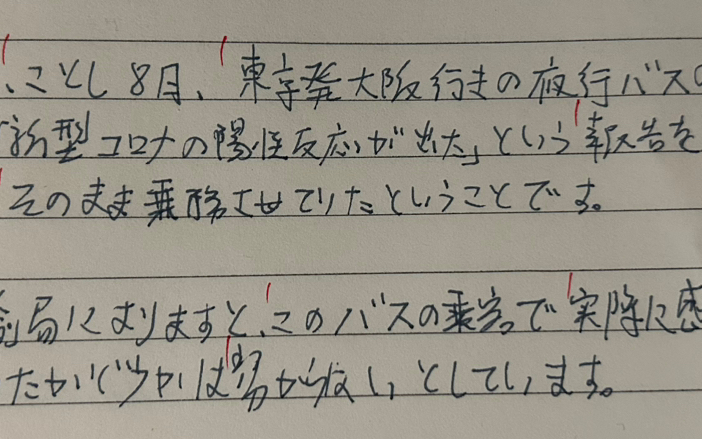 、ことし8月、東京発大阪行きの夜行バスの
新型コロナの陽性反応が出た」という報告を
そのまま乗務させていたということです。
局によりますと、このバスの乗客で実際に感
たかどうかは分からない、としています。